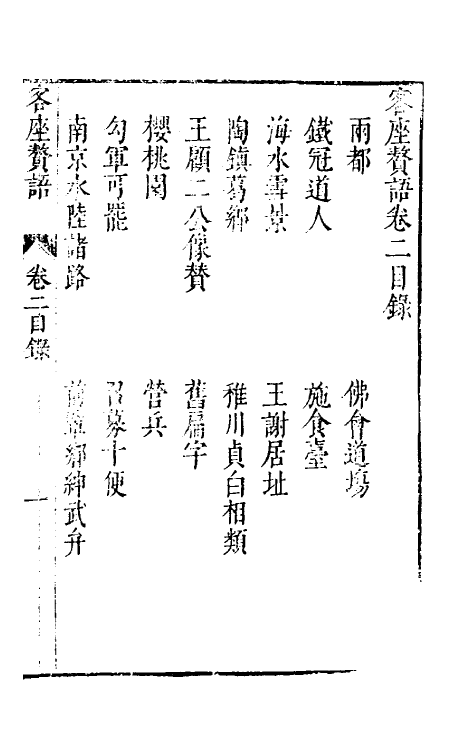 客座贅語卷二目錄
兩都　佛會道場
鐵冠道人　施食臺
海水雲景　王謝居址
陶鎮葛鄉　稚川貞白相類
王顧二公像贊　舊扁字
櫻桃園　營兵
勾軍可罷　召募十便
南京水陸諸路　前輩鄉紳武弁
客座贅語　卷二目錄　一